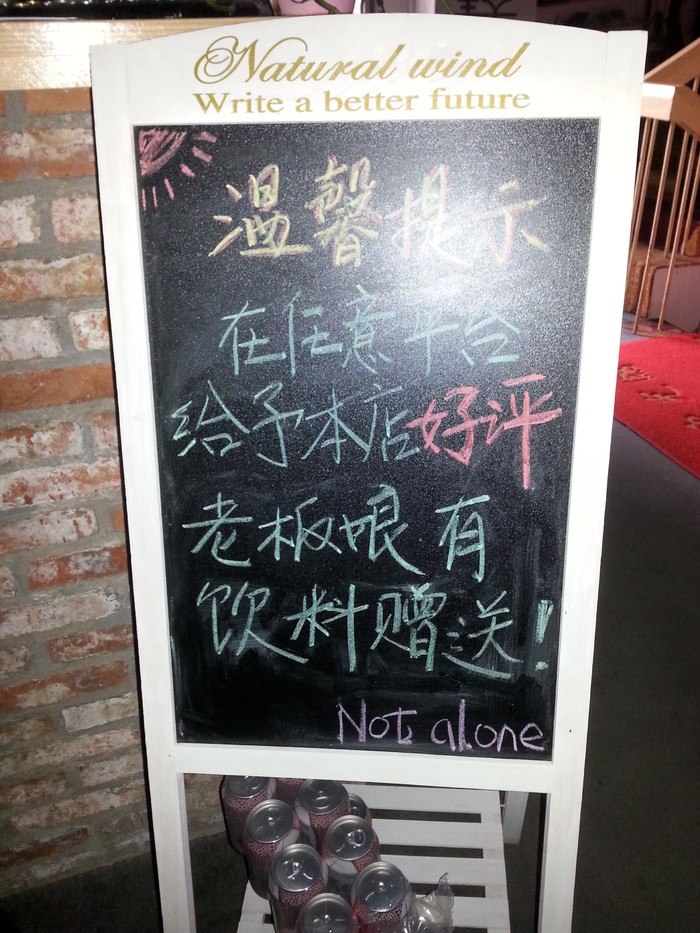 Natural wind
Write a better future
温馨提示
在任意平台
给予本店好评
老板娘有
饮料赠送!
Not alone